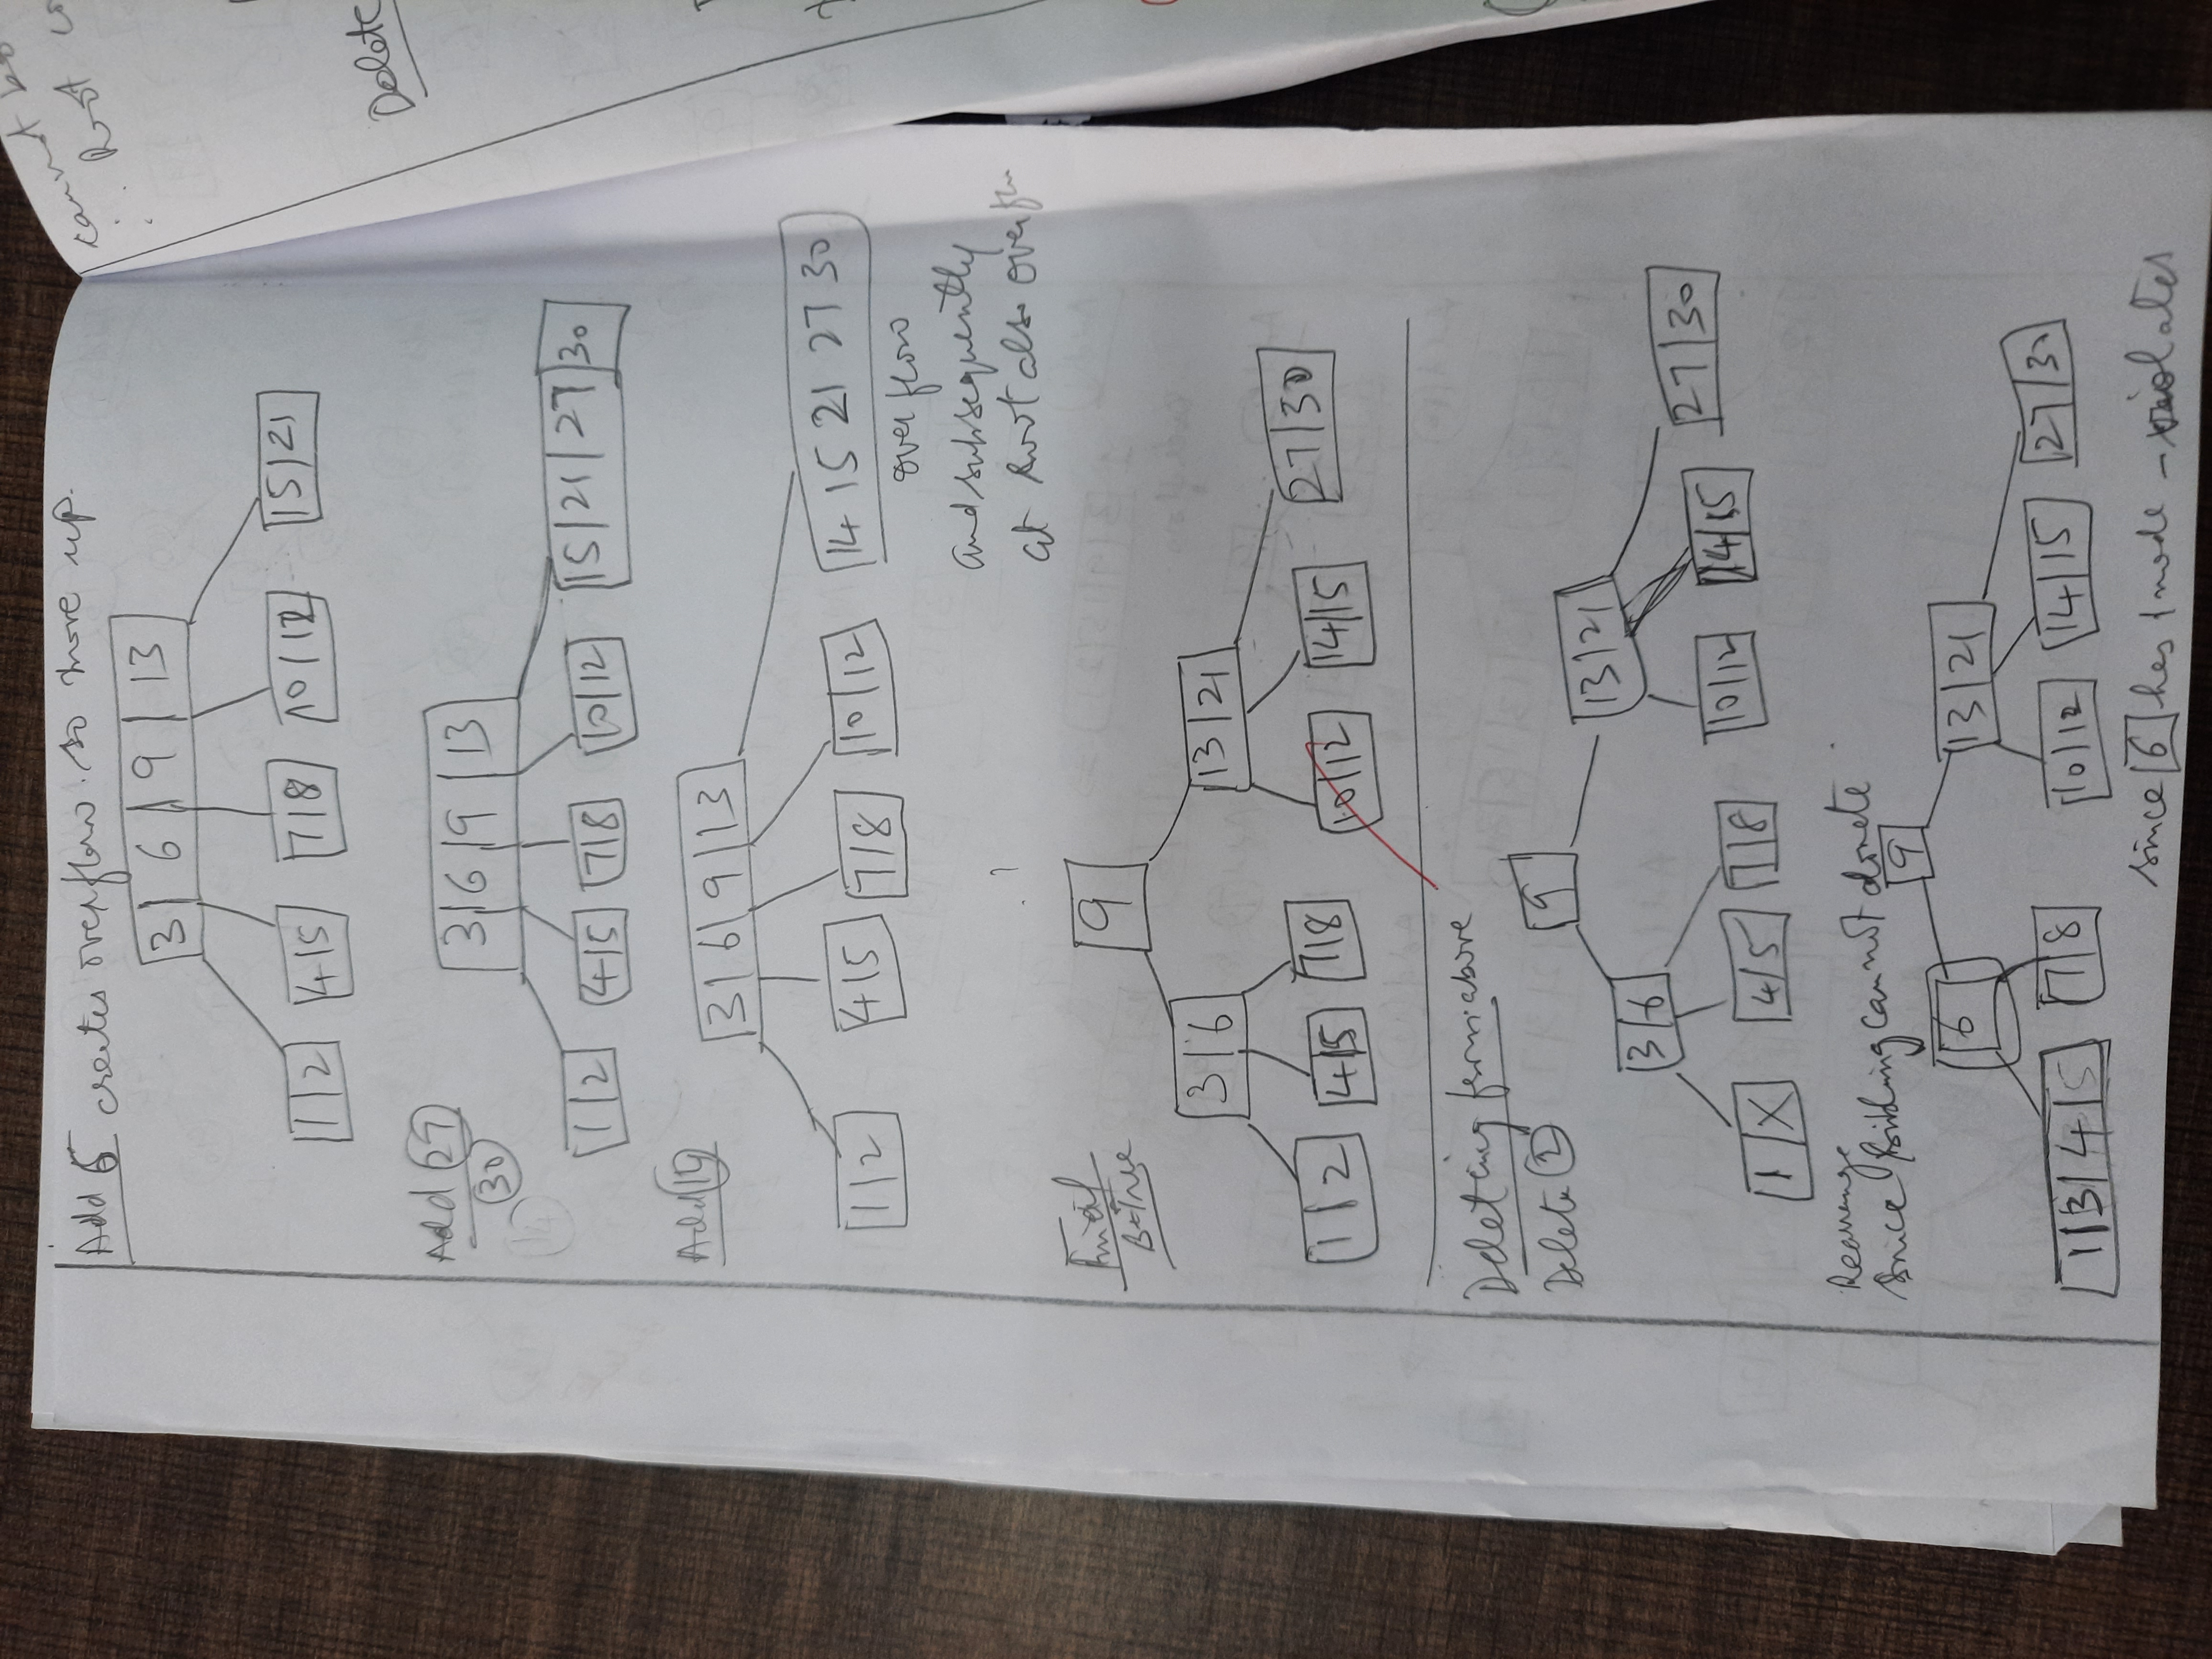 Add 6 creates overflow. So move up.
3 | 6 | 9 | 13
1 | 2   4 | 5   7 | 8   10 | 12   15 | 21
Add 27
30
14
3 | 6 | 9 | 13
1 | 2   4 | 5   7 | 8   10 | 12   15 | 21 | 27 | 30
Add 14
3 | 6 | 9 | 13
1 | 2   4 | 5   7 | 8   10 | 12   14 15 21 27 30
overflow
and subsequently
at Root also overflow
Final
B-Tree
9
3 | 6   13 | 21
1 | 2   4 | 5   7 | 8   10 | 12   14 | 15   27 | 30
Deleting from above
Delete 2
9
3 | 6   13 | 21
1 | X   4 | 5   7 | 8   10 | 12   14 | 15   27 | 30
Rearrange
Since sibling cannot donate
9
6   13 | 21
1 | 3 | 4 | 5   7 | 8   10 | 12   14 | 15   27 | 30
since 6 has 1 node - violates
cannot
Root
Delete